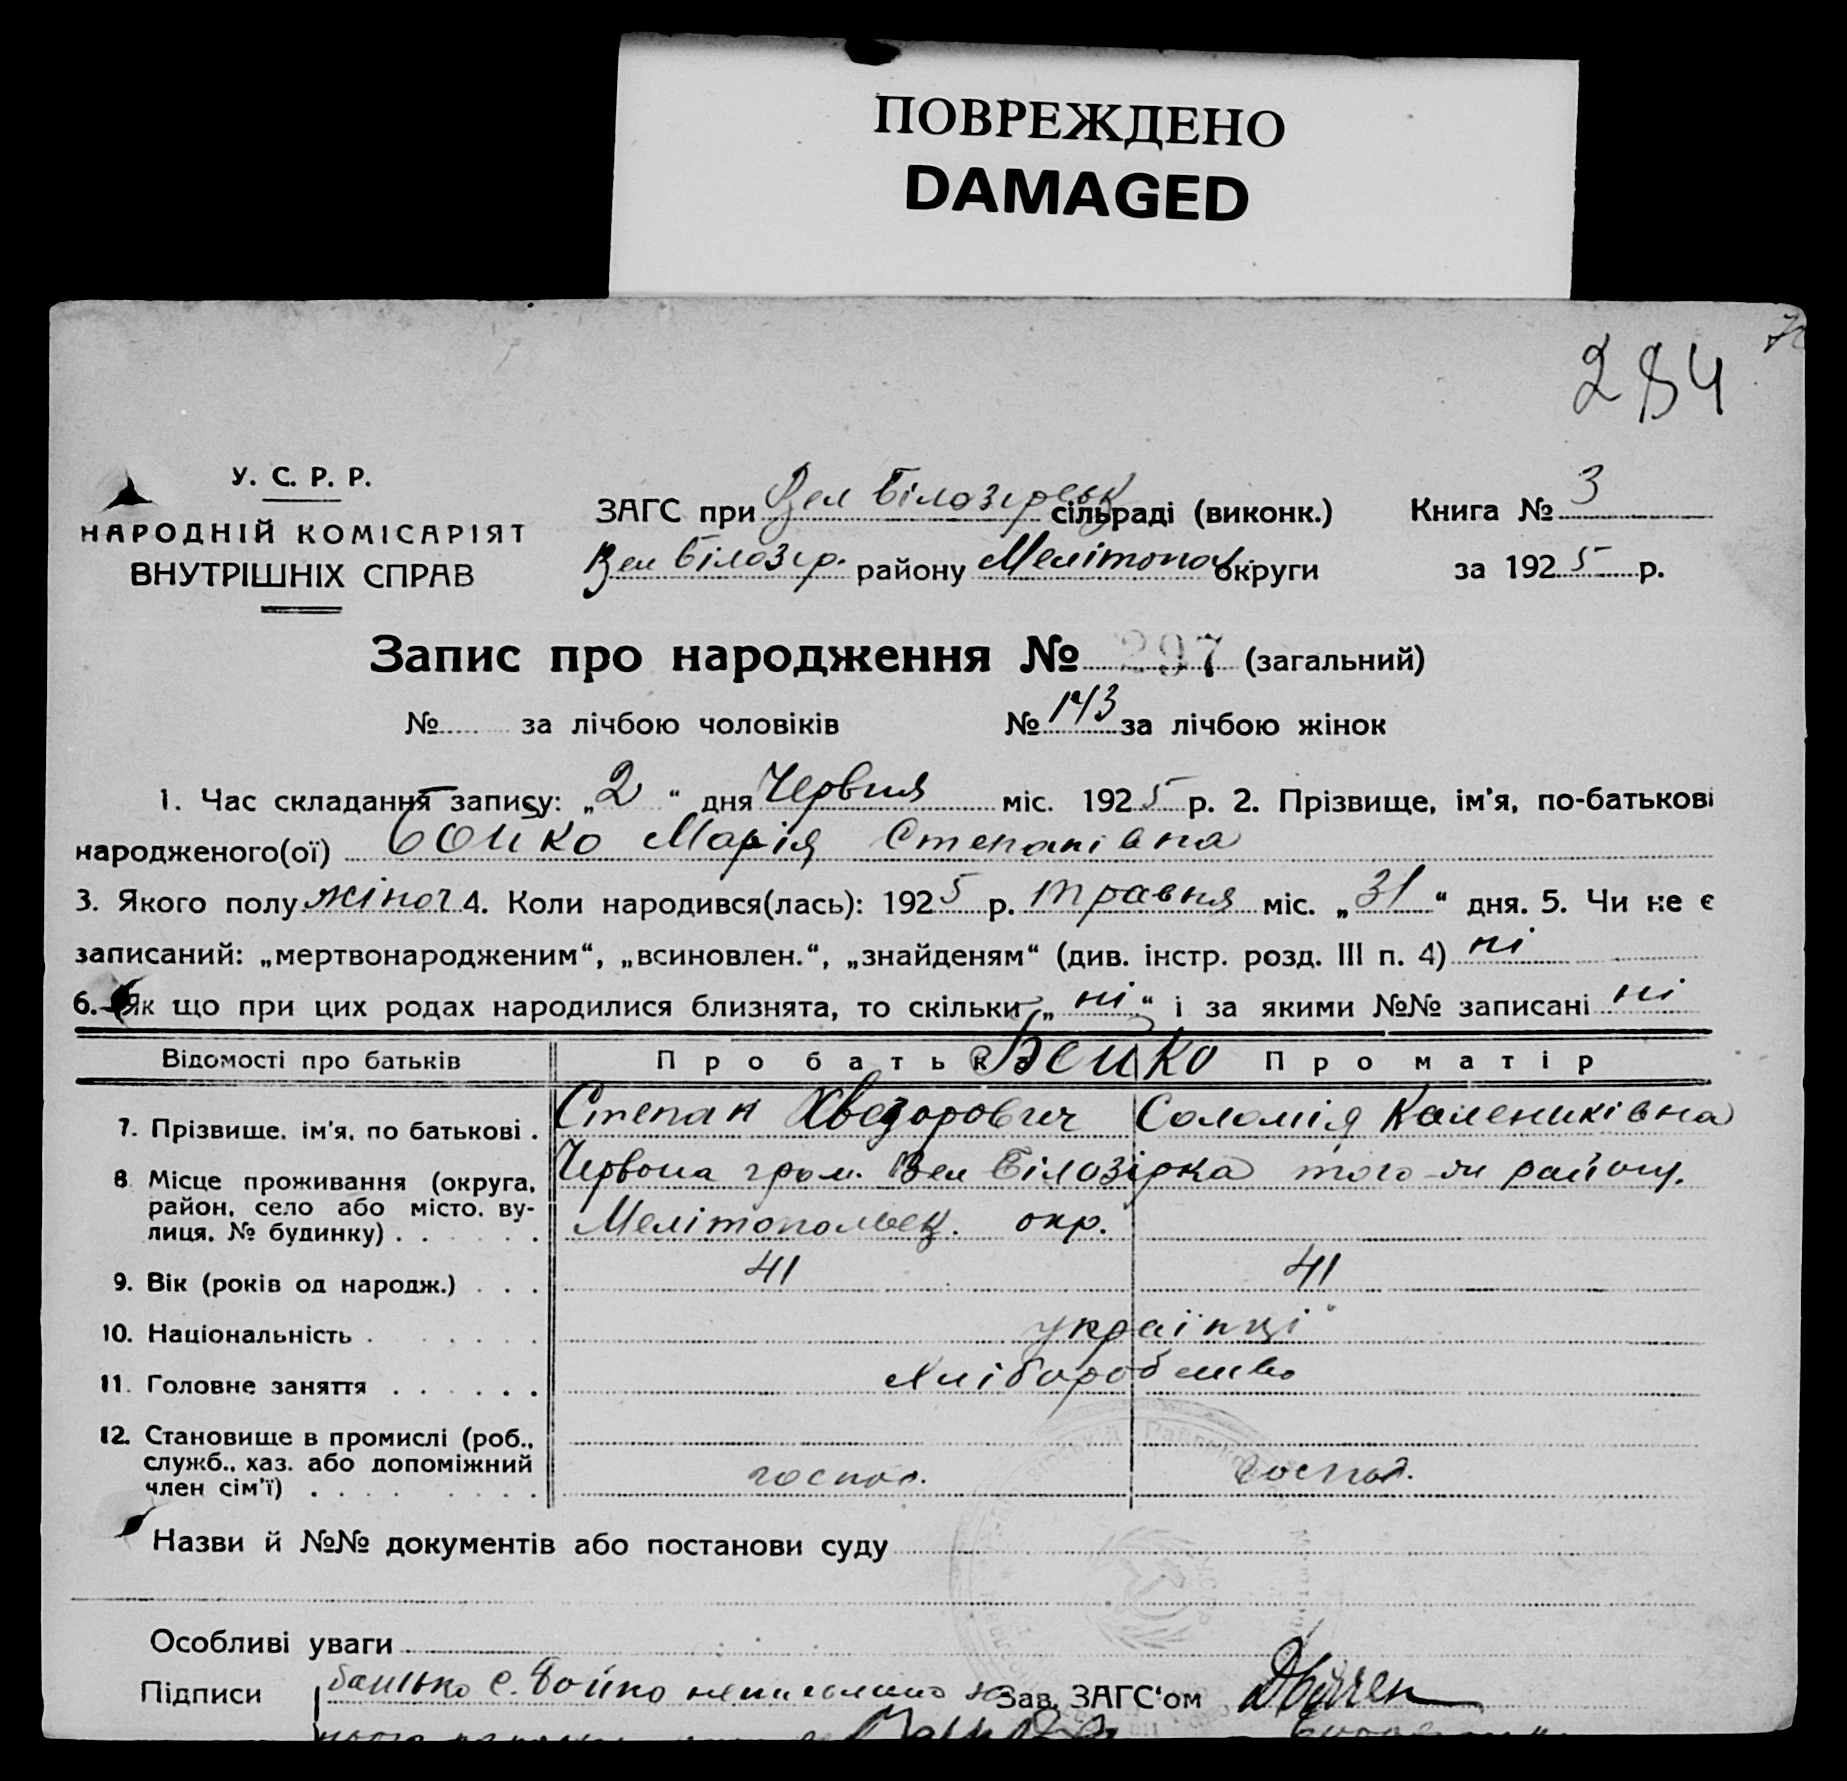 ПОВРЕЖДЕНО
DAMAGED
284
У. С. Р. Р.
НАРОДНІЙ КОМІСАРІЯТ
ВНУТРІШНІХ СПРАВ
ЗАГС при Вел Білозірськ сільраді (виконк.) Книга № 3
Вел Білозір. району Мелітопол округи за 1925 р.
Запис про народження № 297 (загальний)
№ за лічбою чоловіків № 143 за лічбою жінок
1. Час складання запису: „2“ дня Червня міс. 1925 р. 2. Прізвище, ім'я, по-батькові
народженого(ої) Бойко Марія Степанівна
3. Якого полу жіноч 4. Коли народився(лась): 1925 р. травня міс. „31“ дня. 5. Чи не є
записаний: „мертвонародженим“, „всиновлен.“, „знайденям“ (див. інстр. розд. III п. 4) ні
6. Як що при цих родах народилися близнята, то скільки „ні“ і за якими №№ записані ні
Відомості про батьків Про батька Бойко Про матір
7. Прізвище, ім'я, по батькові . Степан Хведорович Соломія Калениківна
8 Місце проживання (округа, район, село або місто, вулиця, № будинку) Червона гром. Вел Білозірка того-ж району.
Мелітопольськ. окр.
9. Вік (років од народж.) 41 41
10. Національність українці
11. Головне заняття Хліборобство
12. Становище в промислі (роб., служб., хаз. або допоміжний член сім'ї) господ. господ.
Назви й №№ документів або постанови суду
Особливі уваги
Підписи батько С. Бойко Зав. ЗАГС'ом